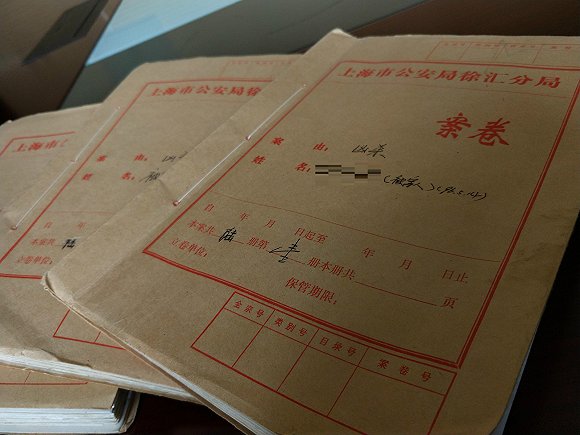 上海市公安局徐汇分局
案卷
案由：凶杀
姓名：
自 年 月 日起至 年 月 日止
本案共 陆 册第 壹 册本册共 页
立卷单位：
保管期限：
全宗号 类别号 目录号 案卷号
上海市公安局徐
案由：凶杀
姓名：
自 年
本案共 陆
立卷单位：
上海市